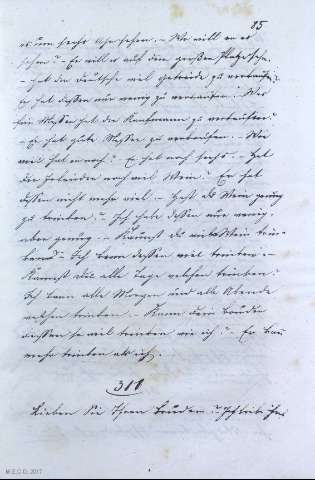 85
es um sechs Uhr sehen. – Wo will er es
sehen? – Er will es auf dem großen Platze sehen.
– Hat der Deutsche viel Getreide zu verkaufen?
Er hat dessen nur wenig zu verkaufen. Was
für Messer hat der Kaufmann zu verkaufen?
– Er hat gute Messer zu verkaufen. – Wie
viel hat er noch? – Er hat noch sechs. – Hat
der Irländer noch viel Wein? – Er hat
dessen nicht mehr viel. – Hast du Wein genug
zu trinken? – Ich habe dessen nur wenig,
aber genug. – Kannst du viel Wein trin-
ken? – Ich kann dessen viel trinken. –
Kannst du alle Tage welchen trinken?
Ich kann alle Morgen und alle Abende
welchen trinken. – Kann dein Bruder
dessen so viel trinken wie ich? – Er kann
mehr trinken als ich.
311
Lieben Sie Ihren Bruder? Ich liebe ihn
M.E.C.D. 2017